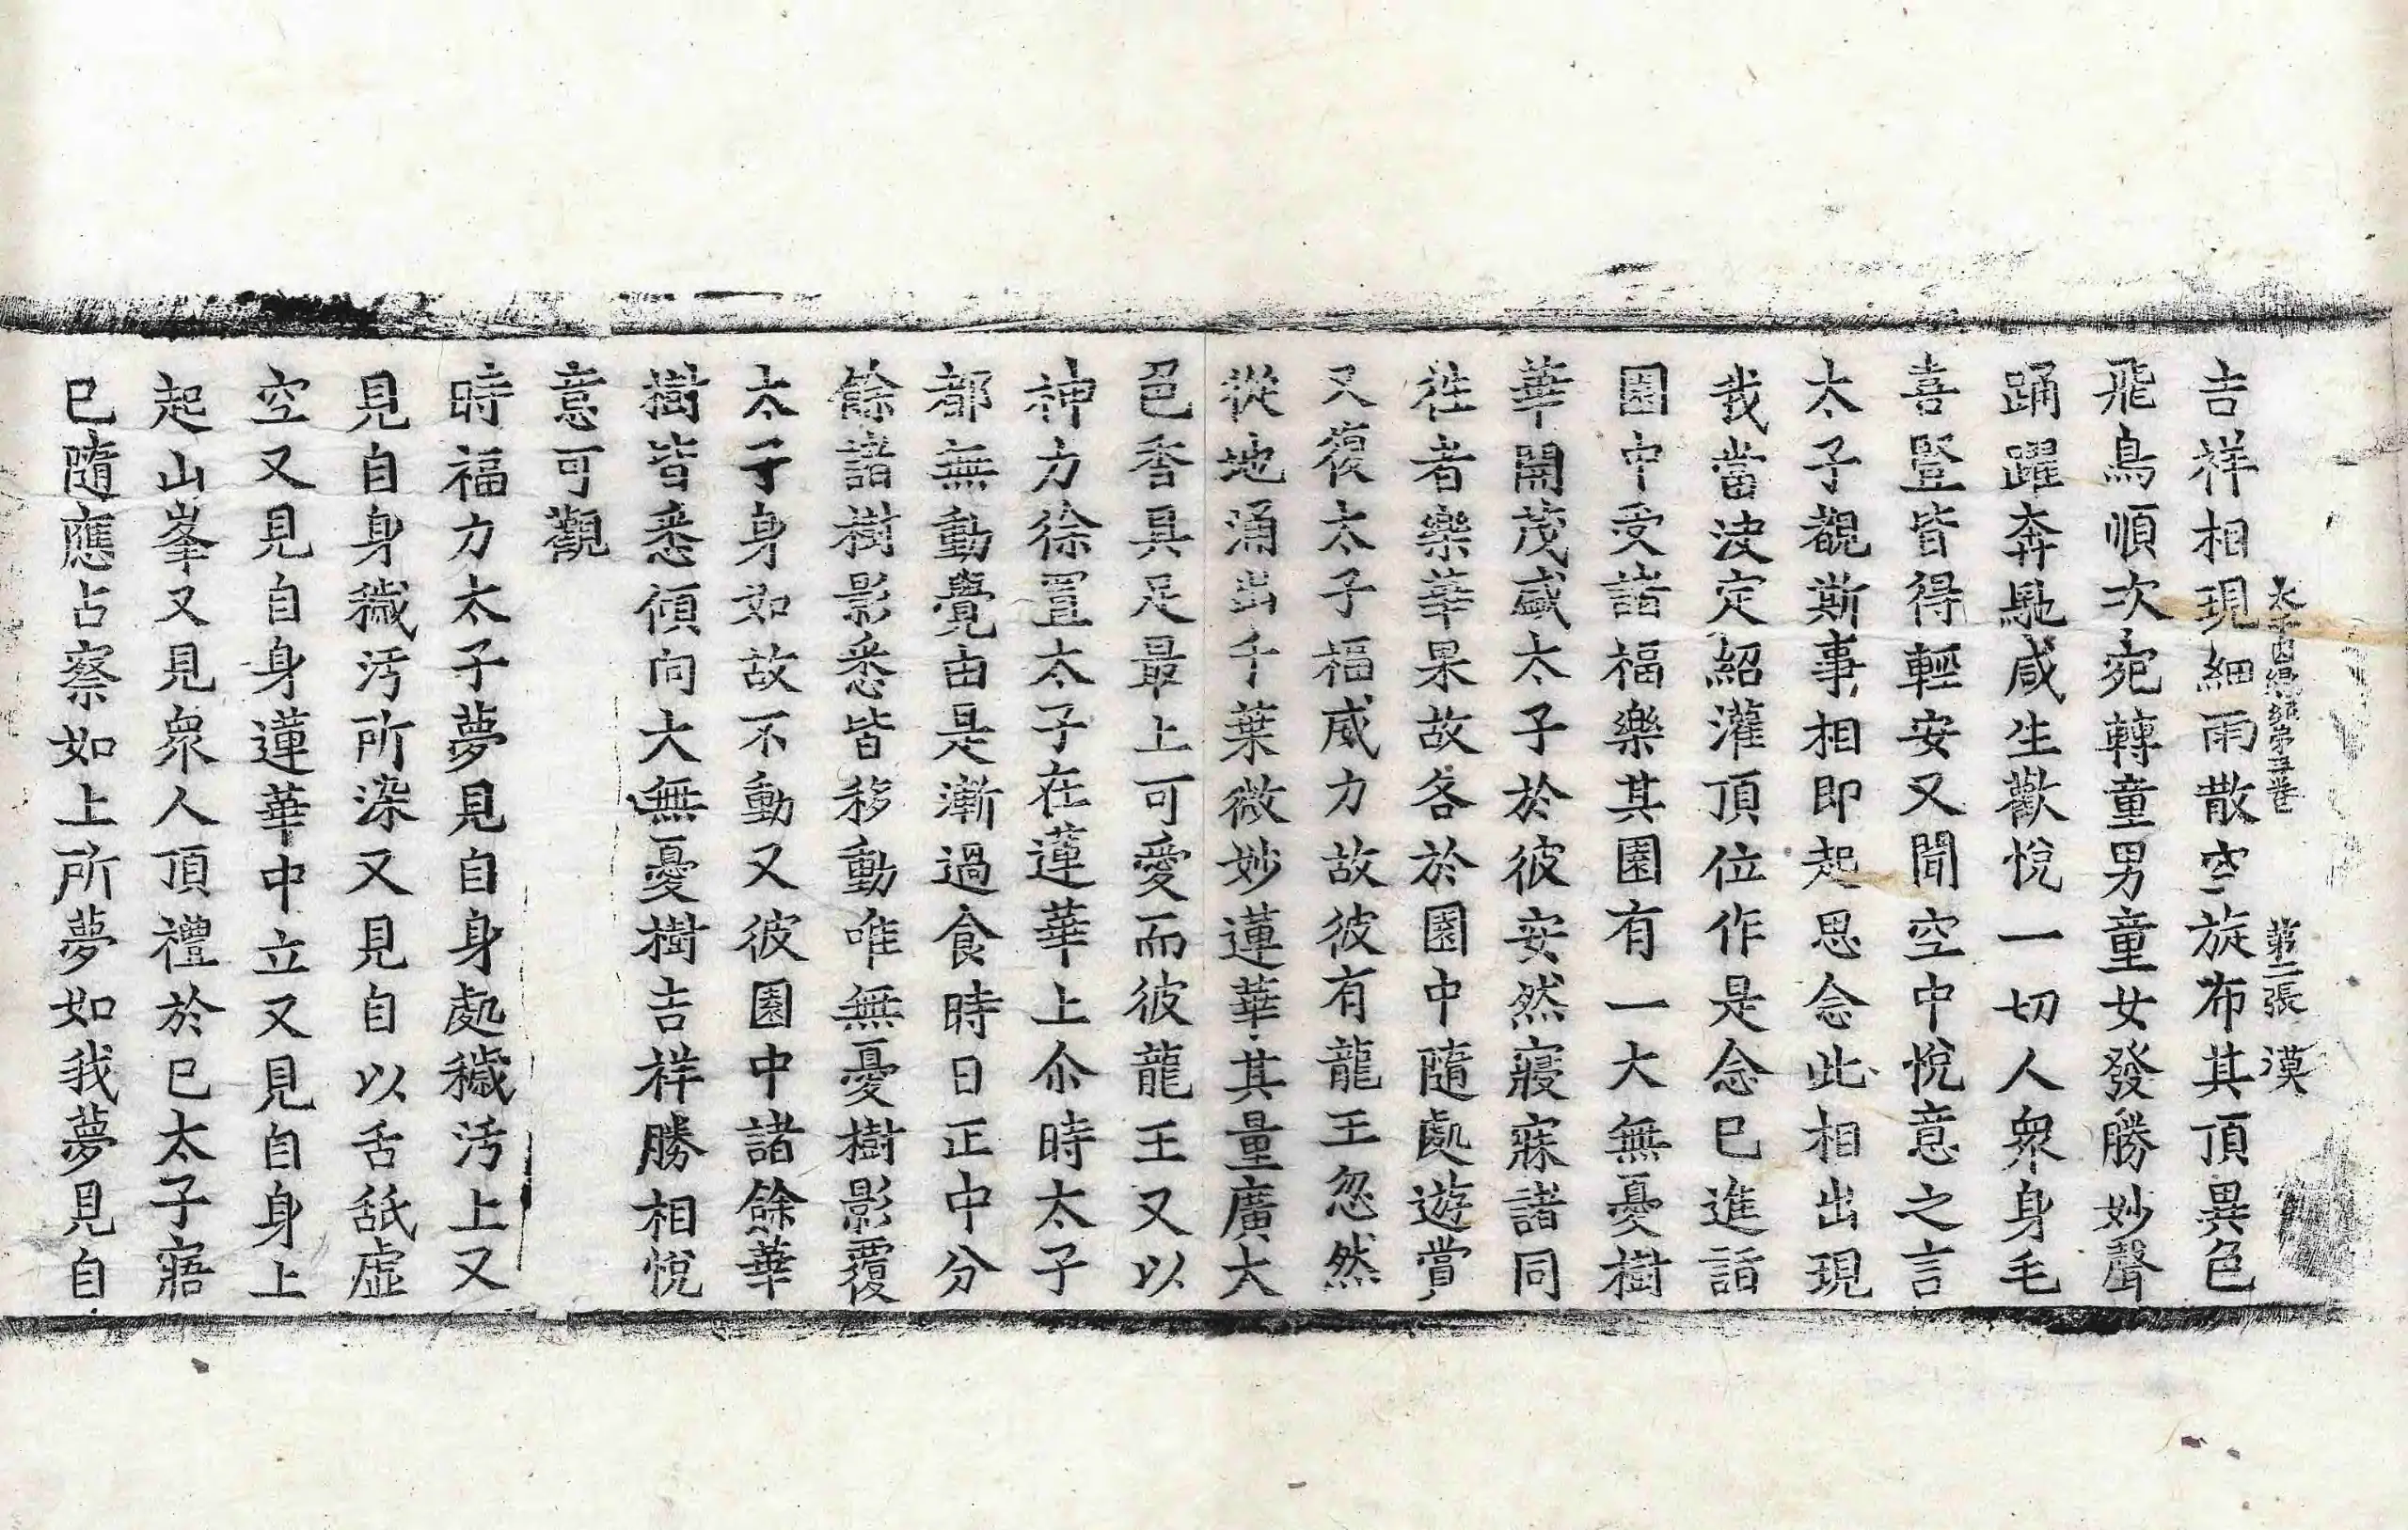 太子因緣經第五卷　第二張　漠
吉祥相現細雨散空旋布其頂異色
飛鳥順次宛轉童男童女發勝妙聲
踊躍奔馳咸生歡悅一切人衆身毛
喜豎皆得輕安又聞空中悅意之言
太子覩斯事相即起思念此相出現
我當決定紹灌頂位作是念已進詣
園中受諸福樂其園有一大無憂樹
華開茂盛太子於彼安然寢寐諸同
徃者樂華果故各於園中隨處遊賞
又復太子福威力故彼有龍王忽然
從地涌出千葉微妙蓮華其量廣大
色香具足最上可愛而彼龍王又以
神力徐置太子在蓮華上尒時太子
都無動覺由是漸過食時日正中分
餘諸樹影悉皆移動唯無憂樹影覆
太子身如故不動又彼園中諸餘華
樹皆悉傾向大無憂樹吉祥勝相悅
意可觀
時福力太子夢見自身處穢汚上又
見自身穢汚所染又見自以舌舐虛
空又見自身蓮華中立又見自身上
起山峯又見衆人頂禮於已太子寤
已隨應占察如上所夢如我夢見自